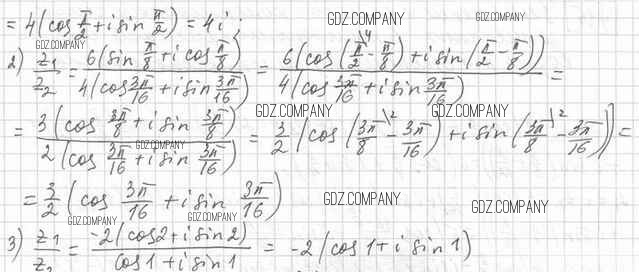 = 4(cos π/2 + i sin π/2) = 4i;
GDZ.COMPANY
GDZ.COMPANY
2) z₁/z₂ = 6(sin π/8 + i cos π/8)/4(cos 3π/16 + i sin 3π/16) = 6(cos(π/2\4 - π/8) + i sin(π/2 - π/8))/4(cos 3π/16 + i sin 3π/16) =
GDZ.COMPANY GDZ.COMPANY
= 3(cos 3π/8 + i sin 3π/8)/2(cos 3π/16 + i sin 3π/16) = 3/2 (cos(3π/8\2 - 3π/16) + i sin(3π/8\2 - 3π/16)) =
GDZ.COMPANY
= 3/2 (cos 3π/16 + i sin 3π/16)
GDZ.COMPANY GDZ.COMPANY
GDZ.COMPANY GDZ.COMPANY
3) z₁/z₂ = -2(cos2 + i sin2)/cos1 + i sin1 = -2(cos1 + i sin1)